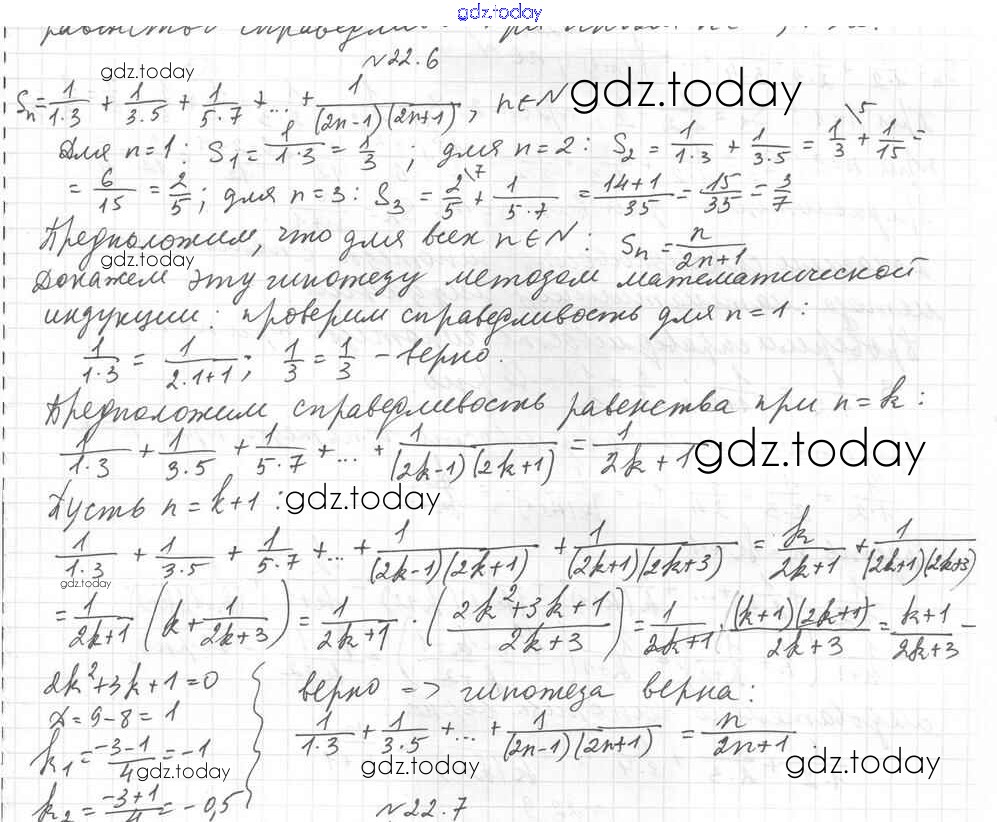 gdz.today
равенство справедливо при
№22.6
gdz.today
S_n = 1/(1·3) + 1/(3·5) + 1/(5·7) + ... + 1/((2n-1)(2n+1)), n∈N gdz.today
Для n=1: S_1 = 1/(1·3) = 1/3; для n=2: S_2 = 1/(1·3) + 1/(3·5) = 1/3 \5 + 1/15 =
= 6/15 = 2/5; для n=3: S_3 = 2/5 \7 + 1/(5·7) = (14+1)/35 = 15/35 = 3/7
Предположим, что для всех n∈N: S_n = n/(2n+1)
gdz.today
Докажем эту гипотезу методом математической
индукции: проверим справедливость для n=1:
1/(1·3) = 1/(2·1+1); 1/3 = 1/3 – верно.
Предположим справедливость равенства при n=k:
1/(1·3) + 1/(3·5) + 1/(5·7) + ... + 1/((2k-1)(2k+1)) = 1/(2k+1) gdz.today
Пусть n=k+1: gdz.today
1/(1·3) + 1/(3·5) + 1/(5·7) + ... + 1/((2k-1)(2k+1)) + 1/((2k+1)(2k+3)) = k/(2k+1) + 1/((2k+1)(2k+3))
gdz.today
= 1/(2k+1) (k + 1/(2k+3)) = 1/(2k+1) · ((2k²+3k+1)/(2k+3)) = 1/(2k+1) · ((k+1)(2k+1))/(2k+3) = (k+1)/(2k+3) –
2k²+3k+1=0
D=9-8=1
k_1 = (-3-1)/4 = -1
gdz.today
k_2 = (-3+1)/4 = -0,5
верно => гипотеза верна:
1/(1·3) + 1/(3·5) + ... + 1/((2n-1)(2n+1)) = n/(2n+1).
gdz.today gdz.today
№22.7